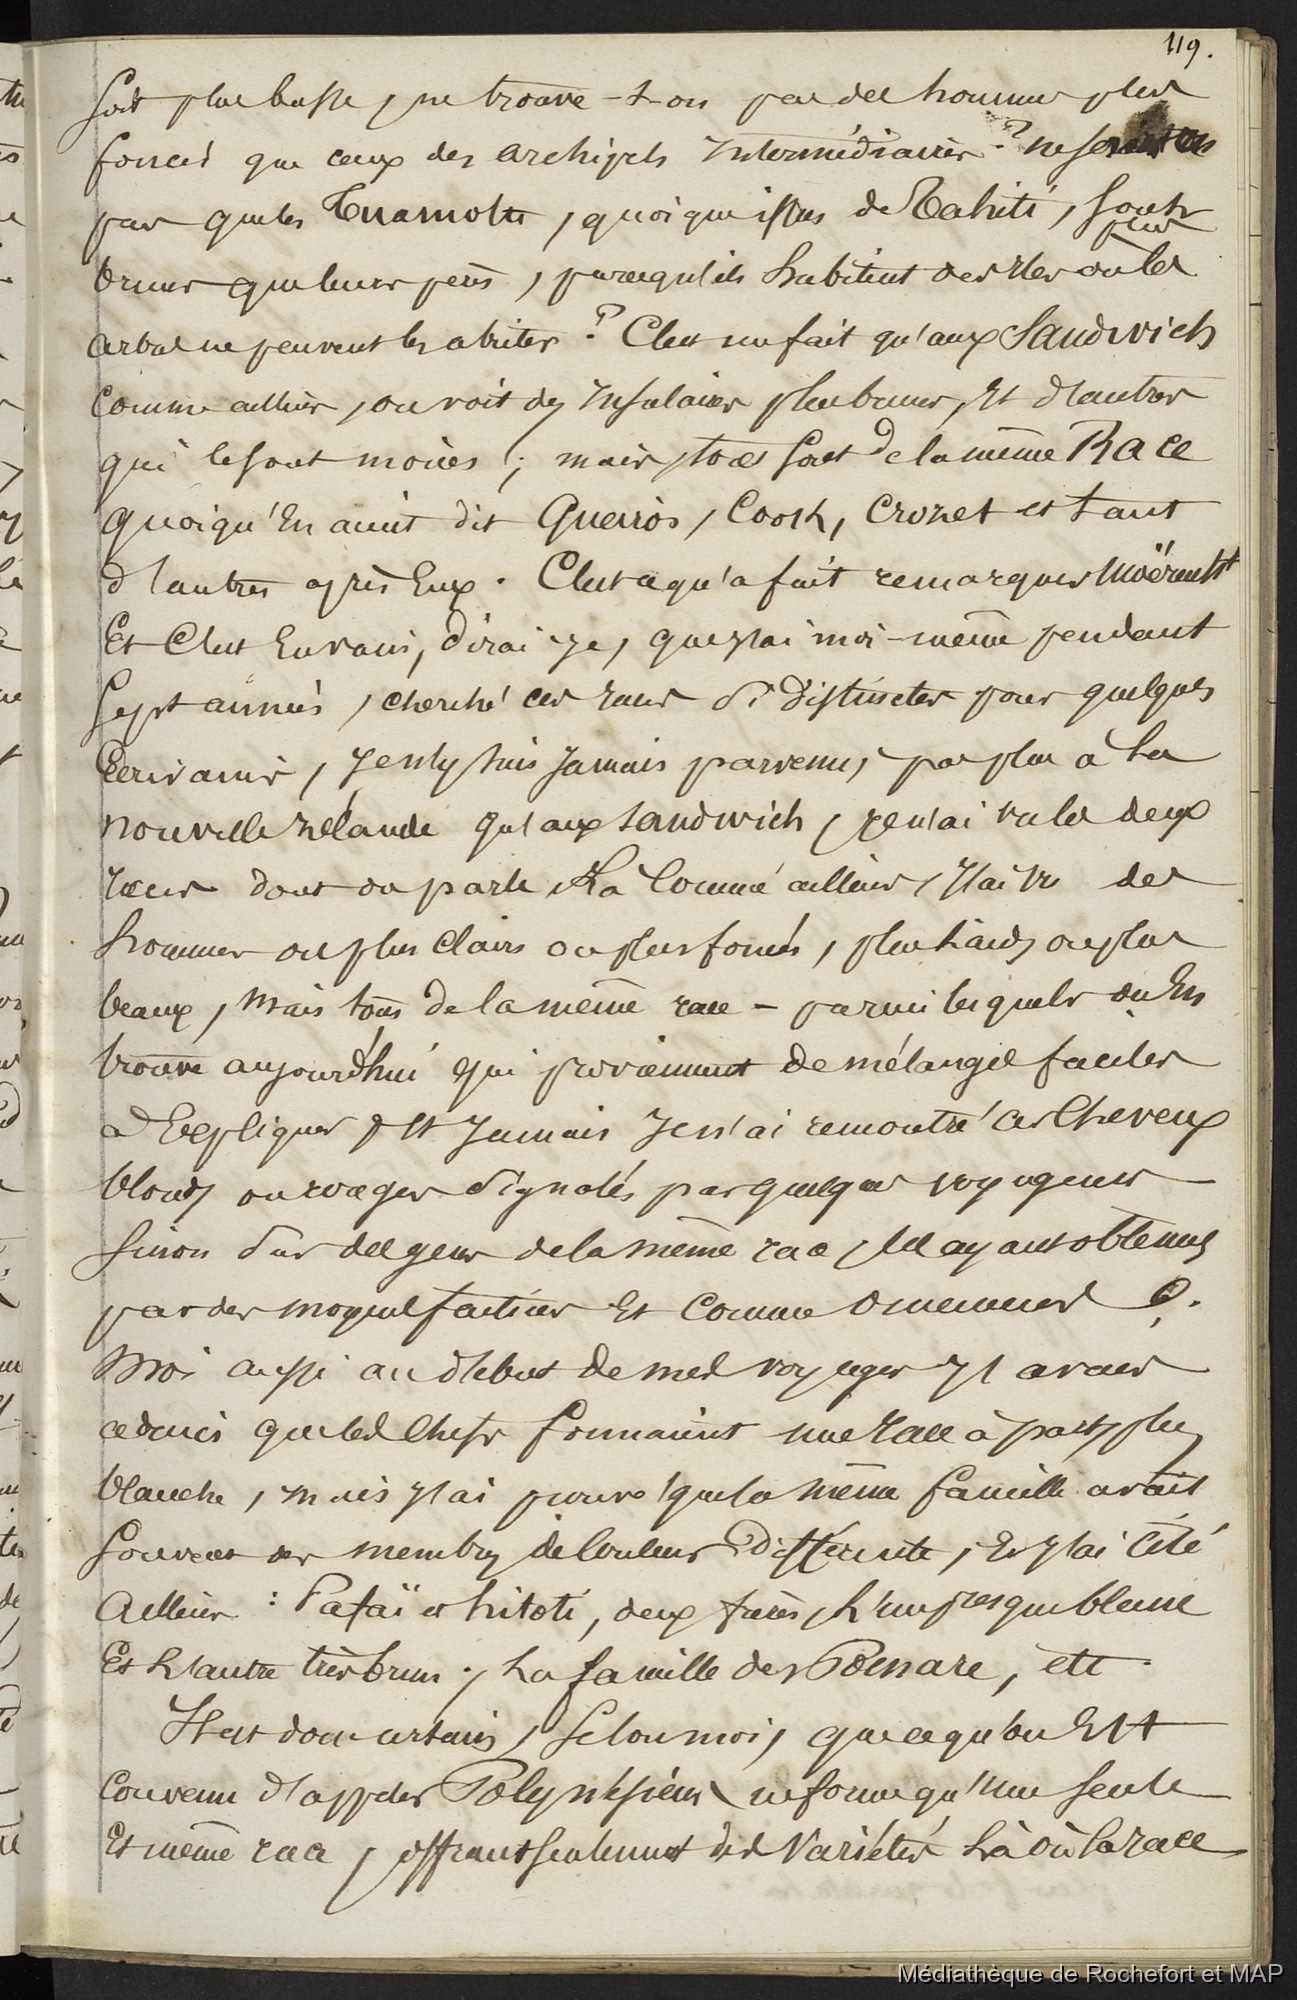 119.
soit plus basse, ne trouve-t-on pas des hommes plus
foncés que ceux des archipels intermédiaires ? ne sent on
pas que les Tuamotu, quoique issus de Tahiti, sont
plus
bruns que leurs pères, parcequ'ils habitent des iles où les
arbres ne peuvent les abriter ? C'est un fait qu'aux Sandwich
comme ailleurs, on voit des insulaires plus bruns, Et d'autres
qui le sont moins ; mais tous sont de la même Race
quoiqu'En aient dit Queiros, Cook, Crozet et tant
d'autres après Eux. C'est ce qu'a fait remarquer Moërenht
Et C'est En vain, dirai-je, que j'ai moi-même pendant
Sept années, cherché ces races si distinctes pour quelques
Ecrivains, je n'y suis jamais parvenu, pas plus à la
nouvelle zélande qu'aux sandwich, je n'ai vu les deux
races dont on parle. Là comme ailleurs, j'ai vu des
hommes ou plus clairs ou plus foncés, plus laids ou plus
beaux, mais tous de la même race - parmi lesquels on En
trouve aujourd'hui qui proviennent de mélanges faciles
à Expliquer, Et jamais je n'ai remontré ces Cheveux
blonds ou rouges signalés par quelques voyageurs
Sinon sur des gens de la même race, les ayant obtenus
par des moyens factices Et comme
Moi aussi au début de mes voyages j'avais
admis que les Chefs formaient une race à part, plus
blanche, mais j'ai prouvé que la même famille avait
souvent des membres de couleur différente, Et j'ai cité
Ailleurs : Tafaï et hitoti, deux frères, l'un presque blanc
Et l'autre très brun ; la famille des Pomare, etc.
Il est donc certain, selon moi, que ce qu'on Est
convenu d'appeler Polynésiens ne forme qu'une seule
Et même race, offrant seulement des Variétés là où la race
Médiathèque de Rochefort et MAP